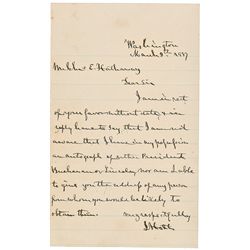 Washington
March 8th 1887
E. Hathaway
Dear Sir
I am in rect
of your favor without date & in
reply have to say that I am not
aware that I have in my possession
an autograph of either President
Buchanan or Lincoln, nor am I able
to give you the address of any person
from whom you would be likely to
obtain them.
Very respectfully
J. Holt